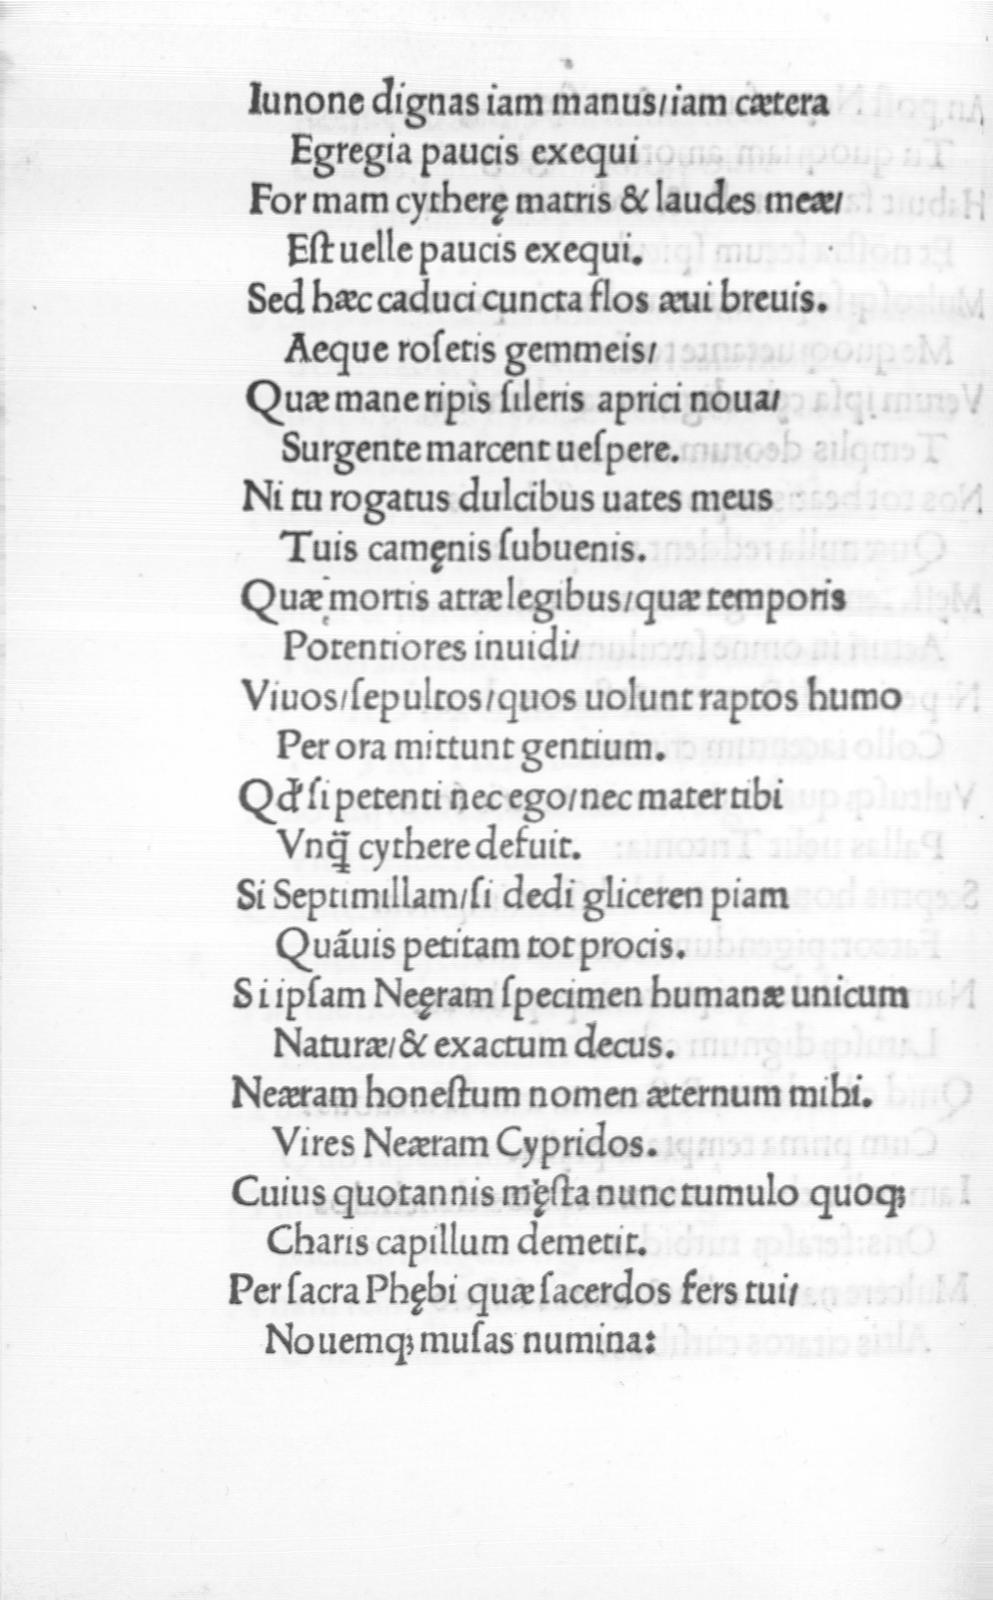 Iunone dignas iam manus/iam cætera
Egregia paucis exequi
For mam cytherę matris & laudes meæ/
Eſt uelle paucis exequi.
Sed hæc caduci cuncta flos æui breuis.
Aeque roſetis gemmeis/
Quæ mane ripis ſileris aprici noua/
Surgente marcent ueſpere.
Ni tu rogatus dulcibus uates meus
Tuis camęnis ſubuenis.
Quæ mortis atræ legibus/quæ temporis
Potentiores inuidi/
Viuos/ſepultos/quos uolunt raptos humo
Per ora mittunt gentium.
Qđ ſi petenti nec ego/nec mater tibi
Vnq̃ cythere defuit.
Si Septimillam/ſi dedi gliceren piam
Quãuis petitam tot procis.
Si ipſam Neęram ſpecimen humanæ unicum
Naturæ/& exactum decus.
Neæram honeſtum nomen æternum mihi.
Vires Neæram Cypridos.
Cuius quotannis męſta nunc tumulo quoqꝫ
Charis capillum demetit.
Per ſacra Phębi quæ ſacerdos fers tui/
Nouemqꝫ muſas numina: